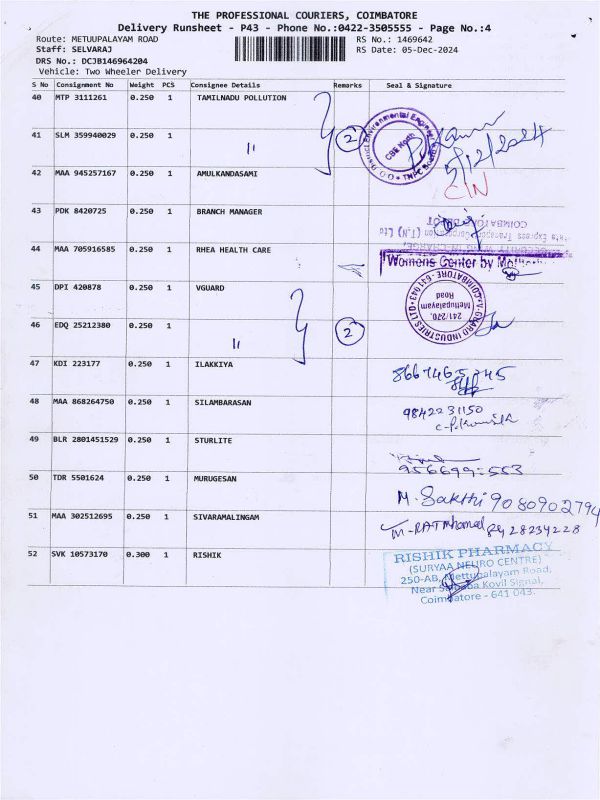 THE PROFESSIONAL COURIERS, COIMBATORE
Delivery Runsheet - P43 - Phone No.:0422-3505555 - Page No.:4
Route: METUUPALAYAM ROAD
RS No.: 1469642
Staff: SELVARAJ
RS Date: 05-Dec-2024
DRS No.: DCJB146964204
Vehicle: Two Wheeler Delivery
S No Consignment No Weight PCS Consignee Details Remarks Seal & Signature
40 MTP 3111261 0.250 1 TAMILNADU POLLUTION
District Environmental Engineer
CBE North
TNPC Board
5/12/2024
2
41 SLM 359940029 0.250 1 "
42 MAA 945257167 0.250 1 AMULKANDASAMI
43 PDK 8420725 0.250 1 BRANCH MANAGER
44 MAA 705916585 0.250 1 RHEA HEALTH CARE
Womens Center by
45 DPI 420878 0.250 1 VGUARD
V-GUARD INDUSTRIES LTD
COIMBATORE - 641 043
241/270,
Mettupalayam
Road
46 EDQ 25212380 0.250 1 "
2
47 KDI 223177 0.250 1 ILAKKIYA
8667465345
48 MAA 868264750 0.250 1 SILAMBARASAN
9842231150
49 BLR 2801451529 0.250 1 STURLITE
50 TDR 5501624 0.250 1 MURUGESAN
M. Sakthi 9080902794
51 MAA 302512695 0.250 1 SIVARAMALINGAM
52 SVK 10573170 0.300 1 RISHIK
RISHIK PHARMACY
(SURYAA NEURO CENTRE)
250-AB, Mettupalayam Road,
Near Saibaba Kovil Signal,
Coimbatore - 641 043.